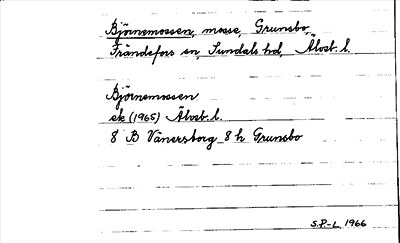 Björnemossen, mosse, Grunsbo,
Frändefors sn, Sundals hd, Älvsb. l.
Björnemossen
ek (1965) Älvsb. l.
8 B Vänersborg 8 h Grunsbo
S.P.-L. 1966